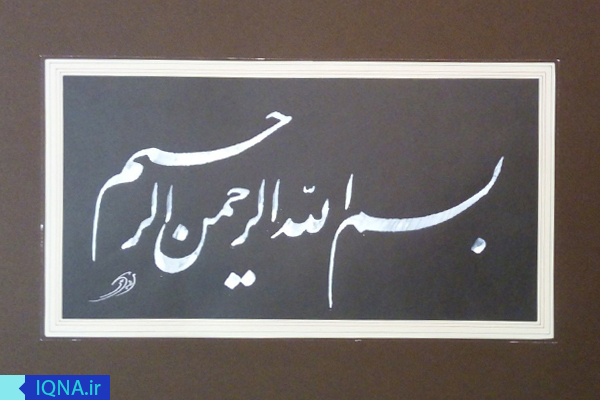 بسم الله الرحمن الرحیم
IQNA.ir